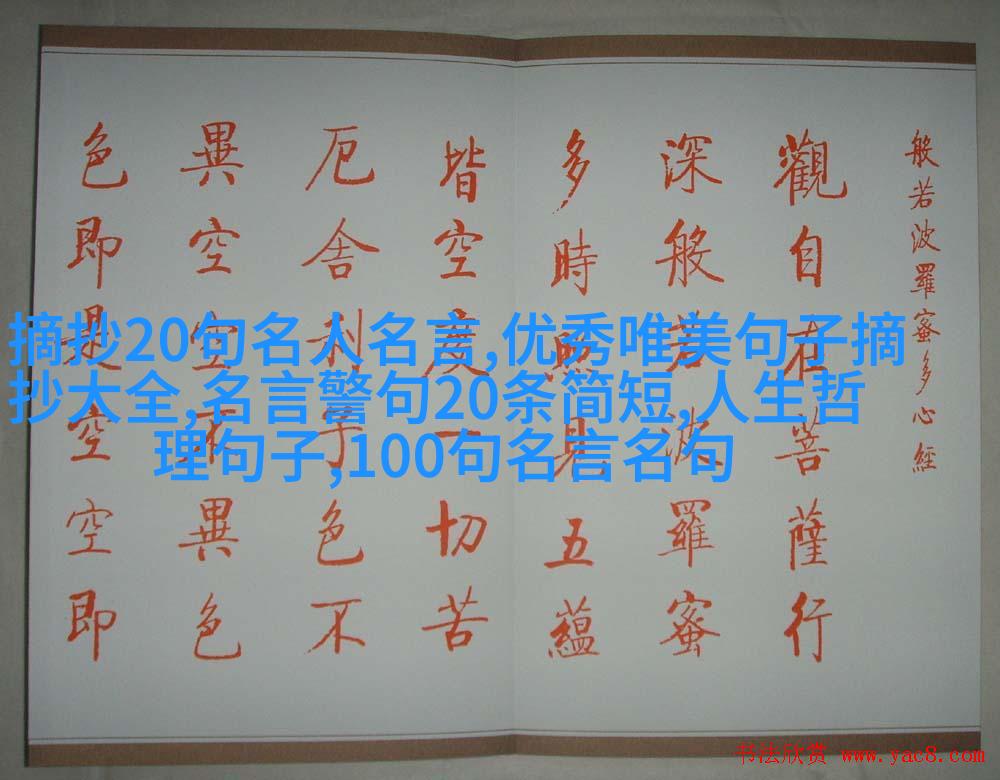 般若波羅蜜多心經
觀自在菩薩行
深般若波羅蜜
多時照見五蘊
皆空度一切苦
厄舍利子色不
異空空不異色
色即是空空即
摘抄20句名人名言,优秀唯美句子摘
抄大全,名言警句20条简短,人生哲
理句子,100句名言名句
书法欣赏 www.yac8.com